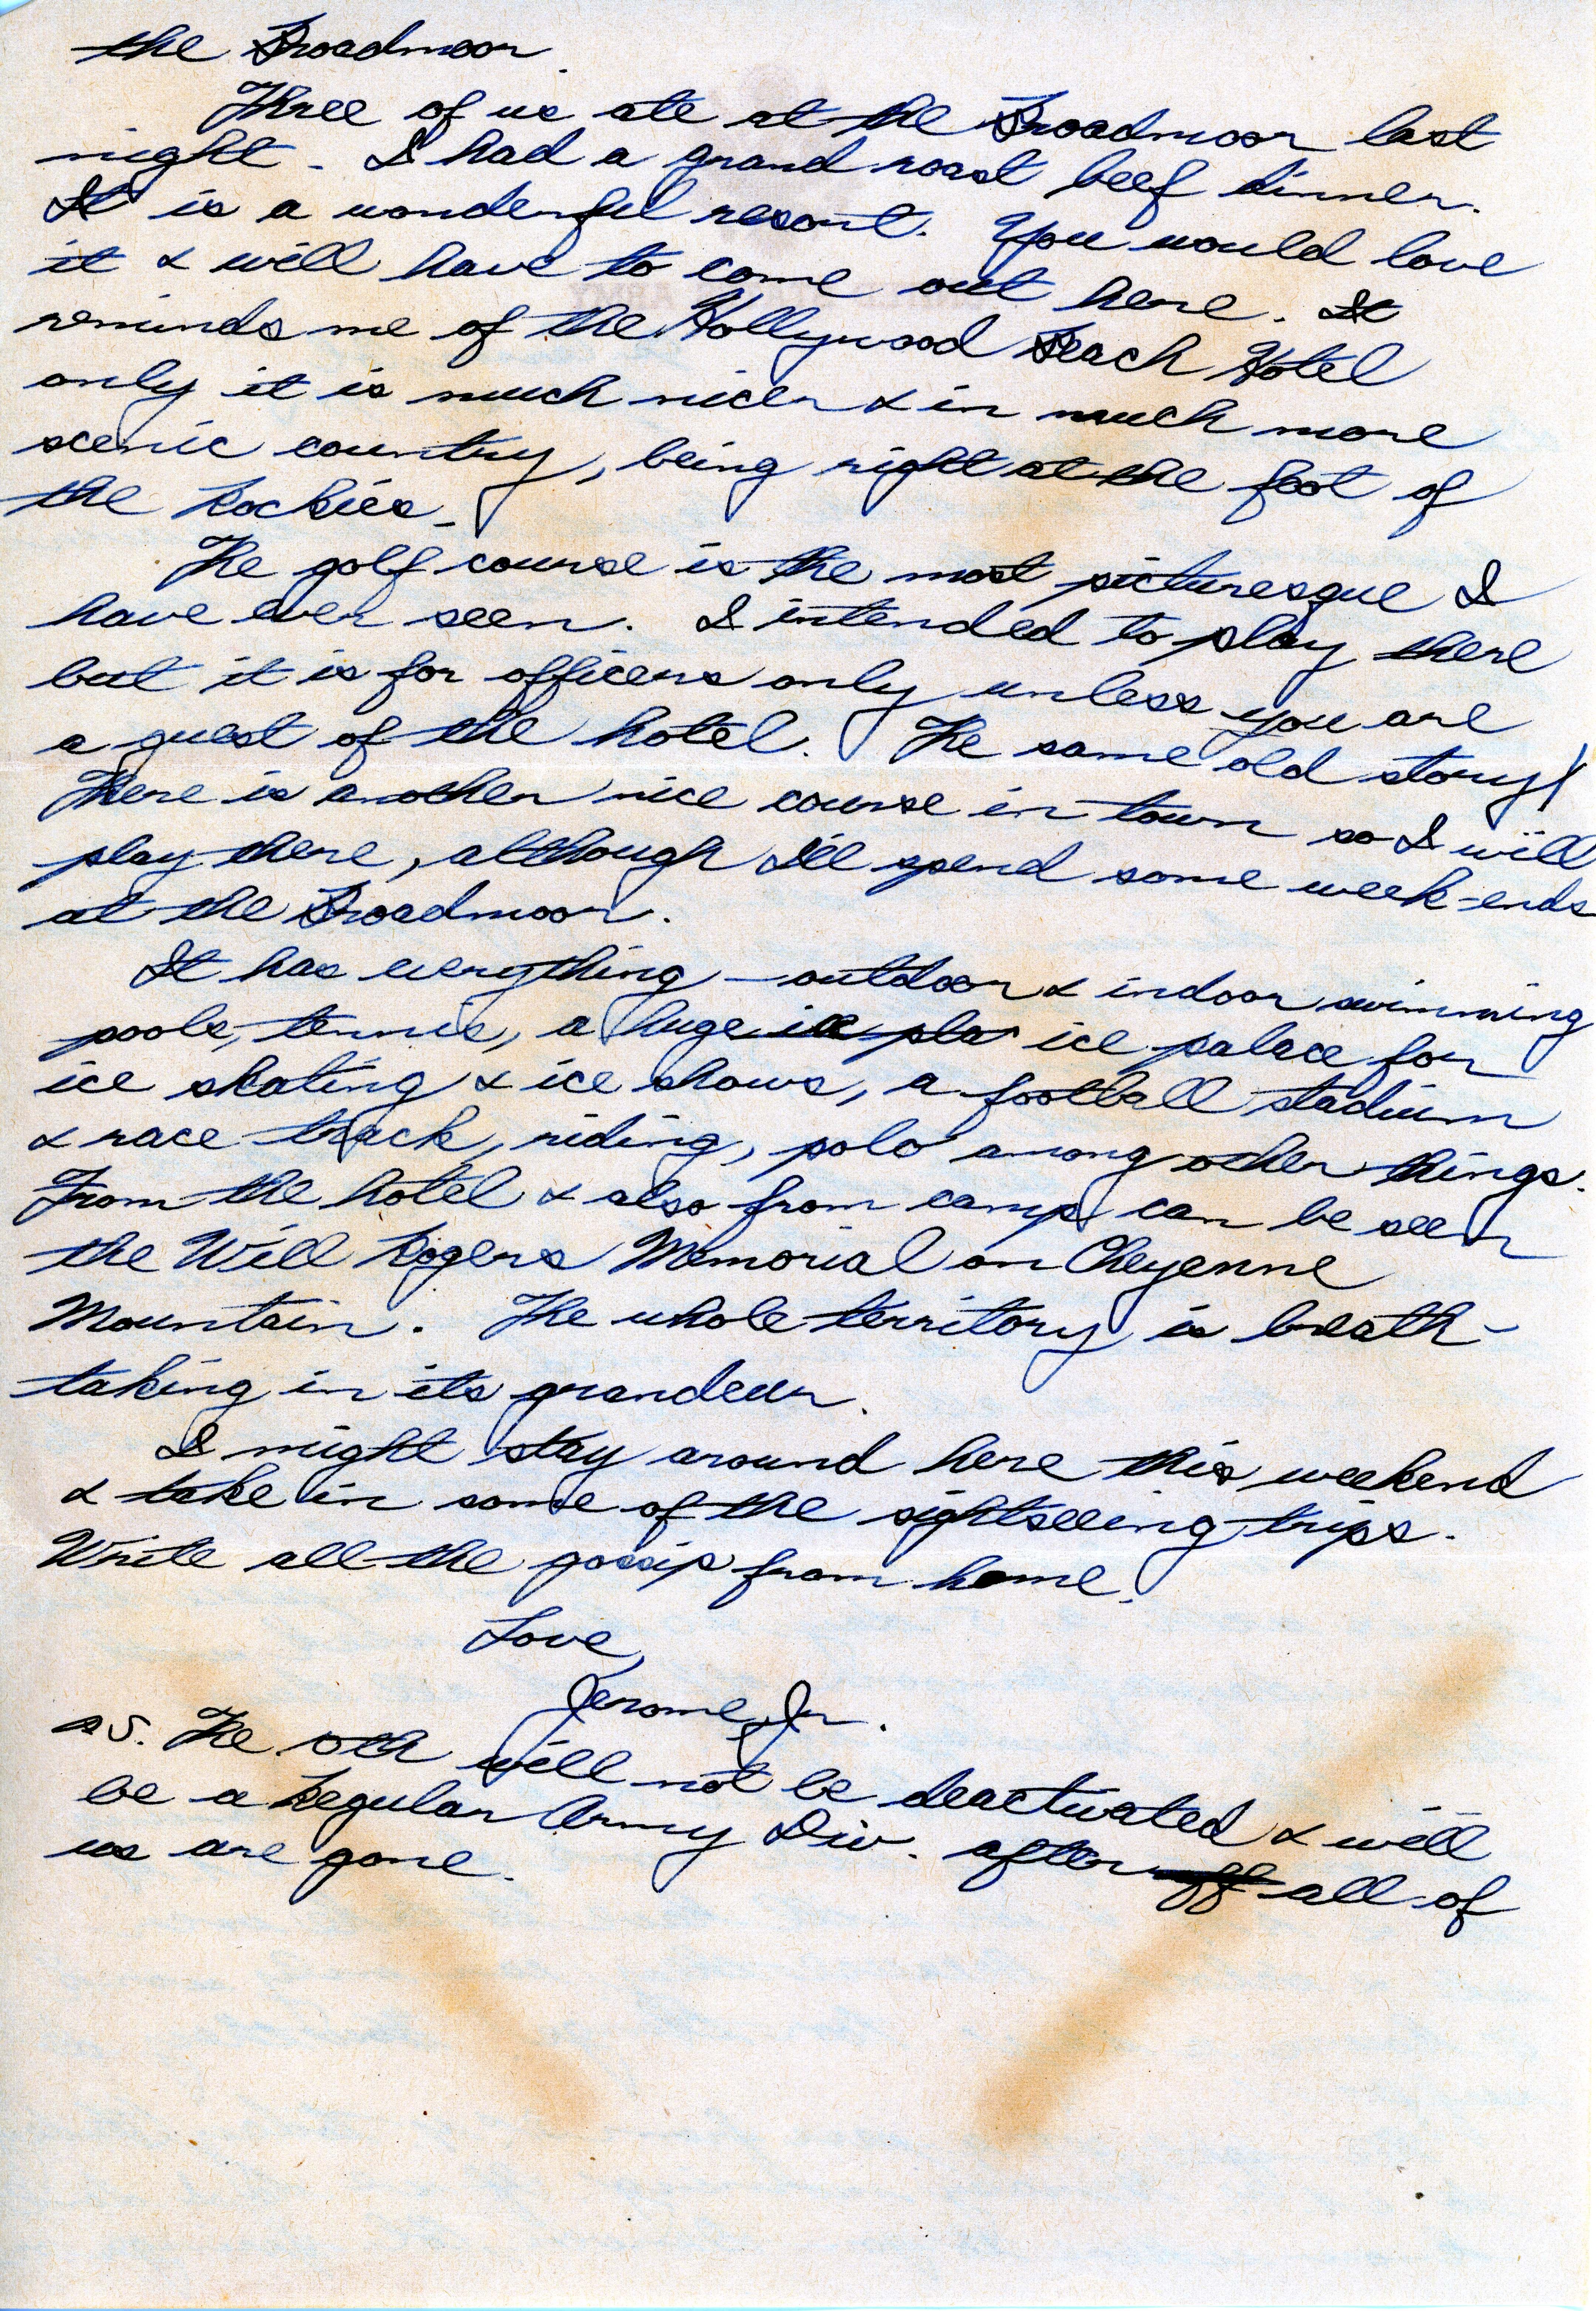 the Broadmoor.
Three of us ate at the Broadmoor last
night. I had a grand roast beef dinner.
It is a wonderful resort. You would love
it & will have to come out here. It
reminds me of the Hollywood Beach Hotel
only it is much nicer & in much more
scenic country, being right at the foot of
the Rockies.
The golf course is the most picturesque I
have ever seen. I intended to play there
but it is for officers only unless you are
a guest of the hotel. The same old story!
There is another nice course in town so I will
play there, although I'll spend some week-ends
at the Broadmoor.
It has everything – outdoor & indoor swimming
pools, tennis, a huge ice pla ice palace for
ice skating & ice shows, a football stadium
& race track, riding, polo among other things.
From the hotel & also from camp can be seen
the Will Rogers Memorial on Cheyenne
Mountain. The whole territory is breath-
taking in its grandeur.
I might stay around here this weekend
& take in some of the sightseeing trips.
Write all the gossip from home.
Love,
Jerome, Jr.
P.S. The will not be deactivated & will
be a Regular Army Div. after all of
us are gone.